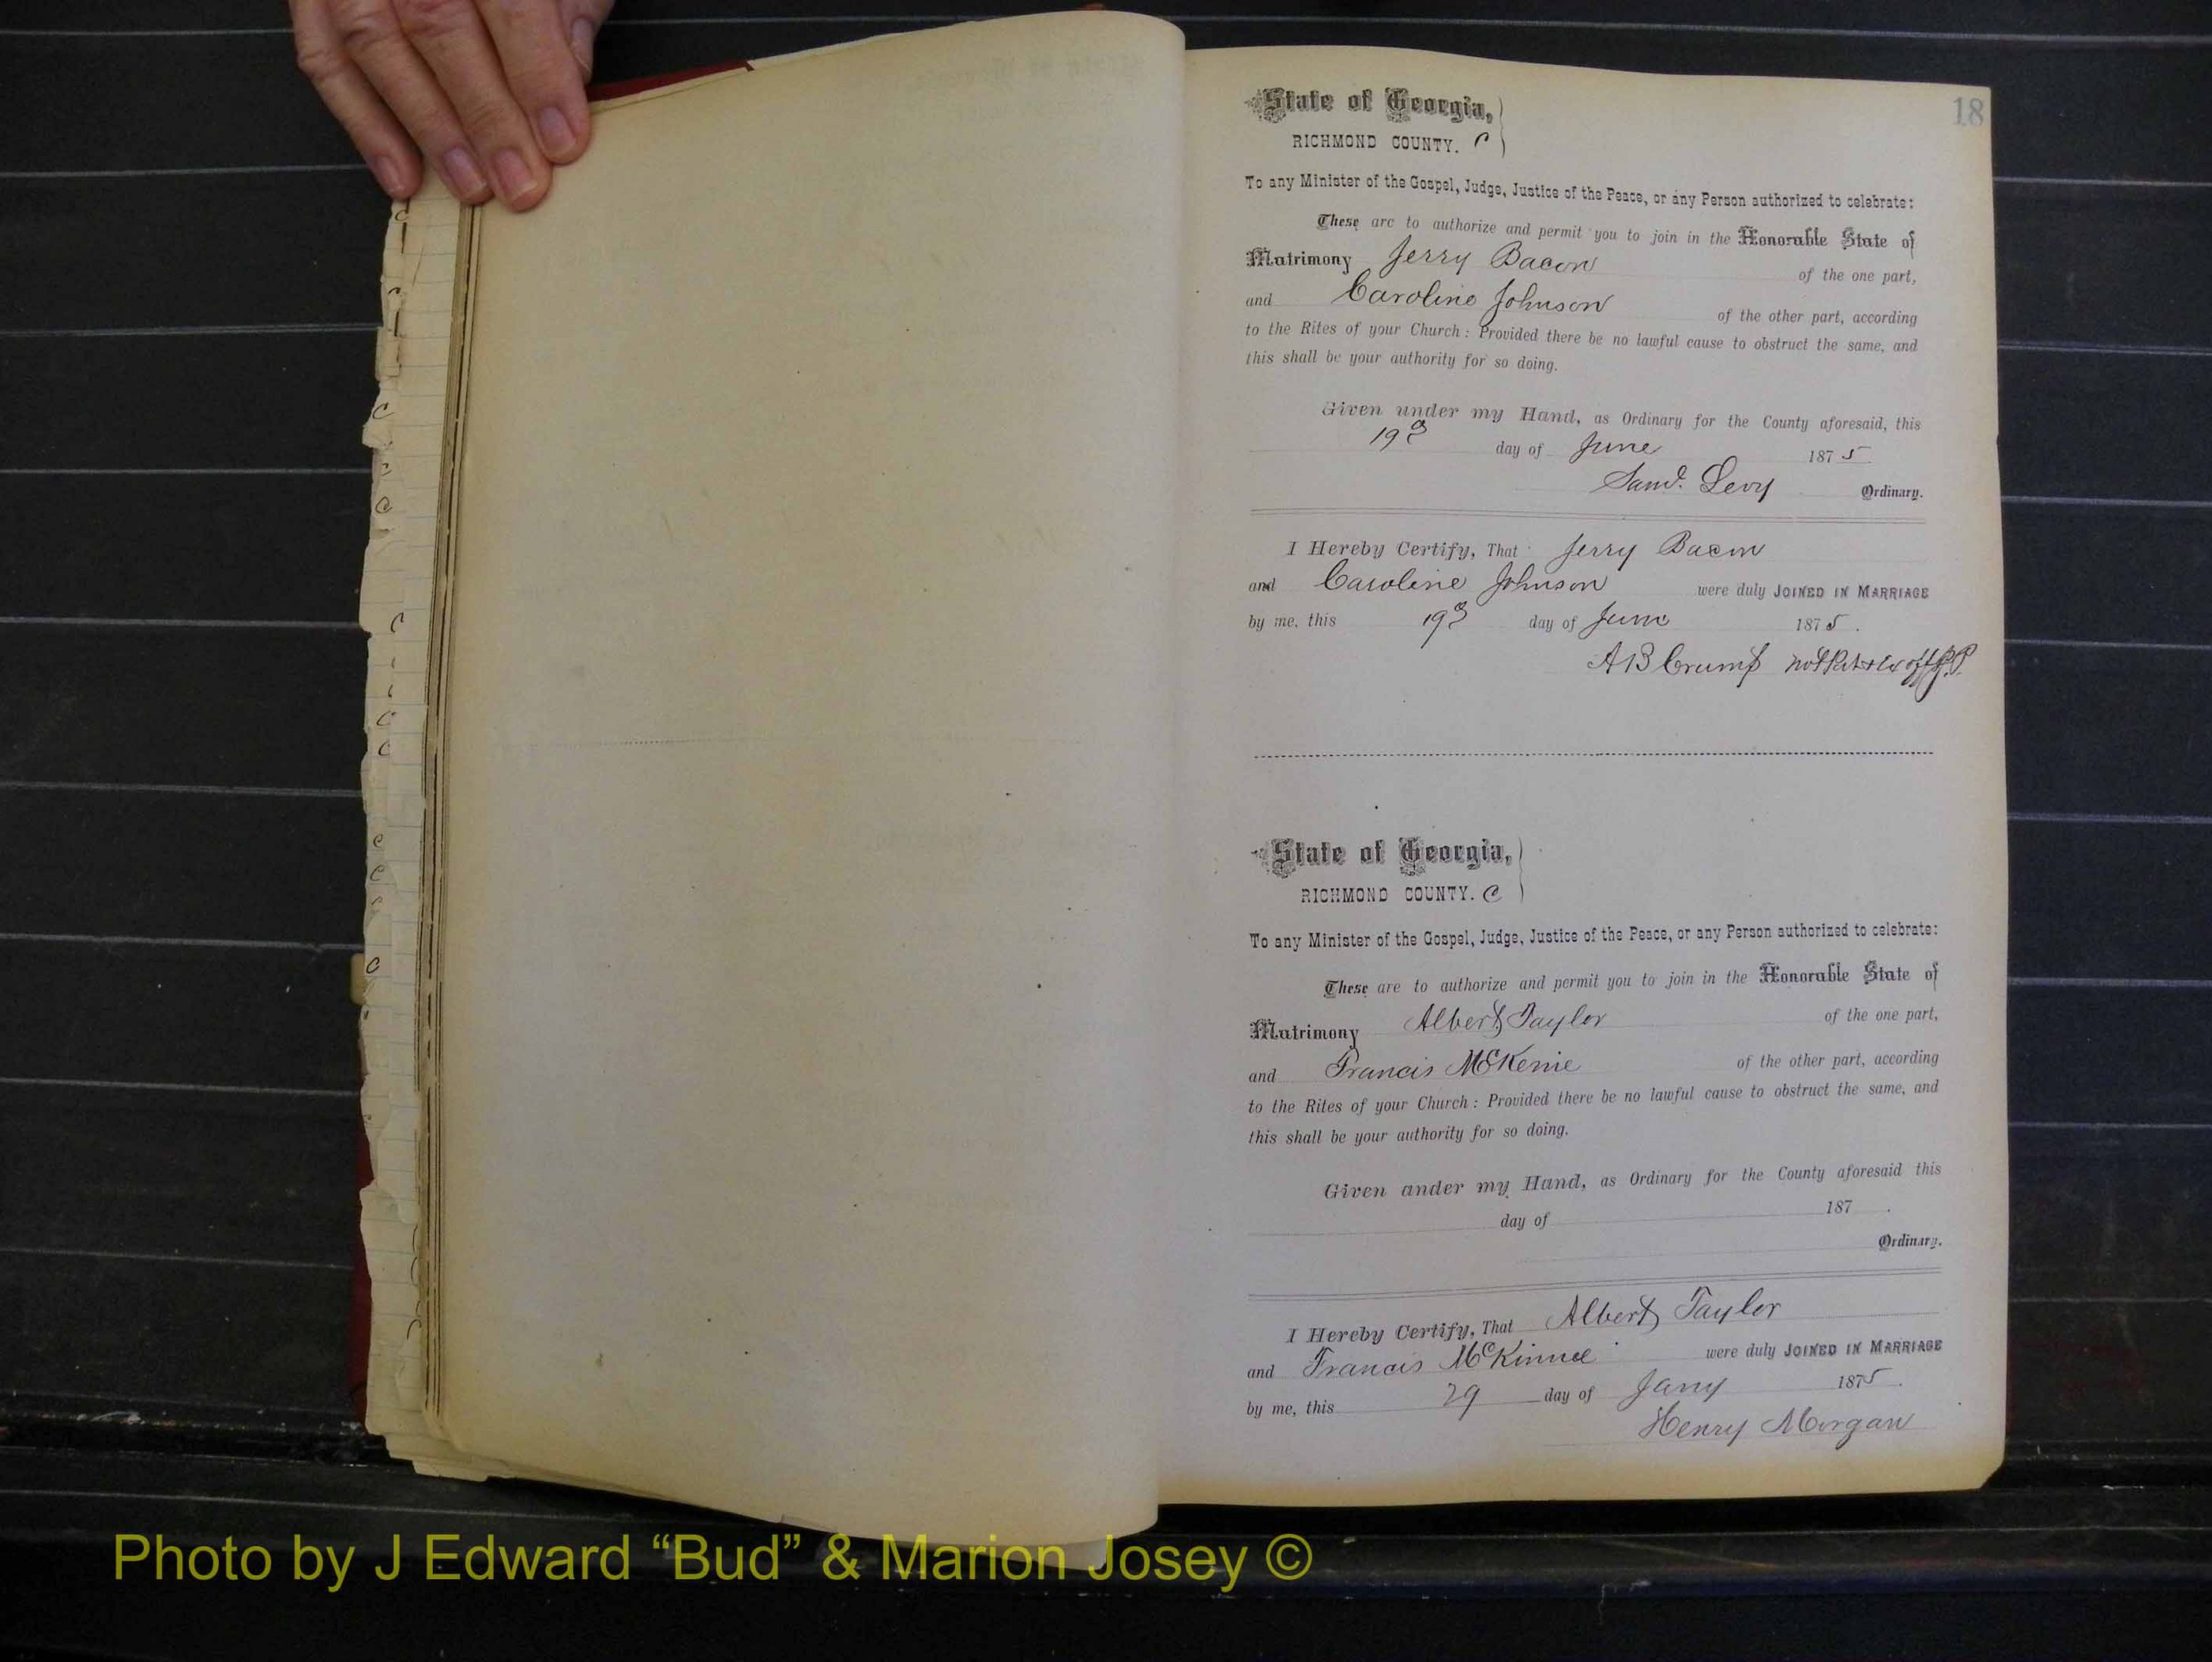 18
State of Georgia,
RICHMOND COUNTY. C
To any Minister of the Gospel, Judge, Justice of the Peace, or any Person authorized to celebrate:
These are to authorize and permit you to join in the Honorable State of
Matrimony Jerry Bacon of the one part,
and Caroline Johnson of the other part, according
to the Rites of your Church: Provided there be no lawful cause to obstruct the same, and
this shall be your authority for so doing.
Given under my Hand, as Ordinary for the County aforesaid, this
19 day of June 1875
Saml. Levy Ordinary.
I Hereby Certify, That Jerry Bacon
and Caroline Johnson were duly JOINED IN MARRIAGE
by me, this 19 day of June 1875.
A B Crump Not Pub & Ex off J.P.
State of Georgia,
RICHMOND COUNTY. C
To any Minister of the Gospel, Judge, Justice of the Peace, or any Person authorized to celebrate:
These are to authorize and permit you to join in the Honorable State of
Matrimony Albert Taylor of the one part,
and Francis McKenie of the other part, according
to the Rites of your Church: Provided there be no lawful cause to obstruct the same, and
this shall be your authority for so doing.
Given under my Hand, as Ordinary for the County aforesaid this
day of 187 .
Ordinary.
I Hereby Certify, That Albert Taylor
and Francis McKinnee were duly JOINED IN MARRIAGE
by me, this 29 day of Jany 1875.
Henry Morgan
Photo by J Edward “Bud” & Marion Josey ©